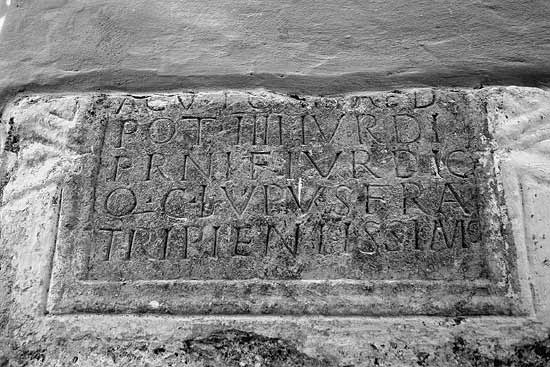 POT IIII IVR DI
PRN IF IVR DIC
Q·C·LVPVS FRA
TRI PIENTISSIMO